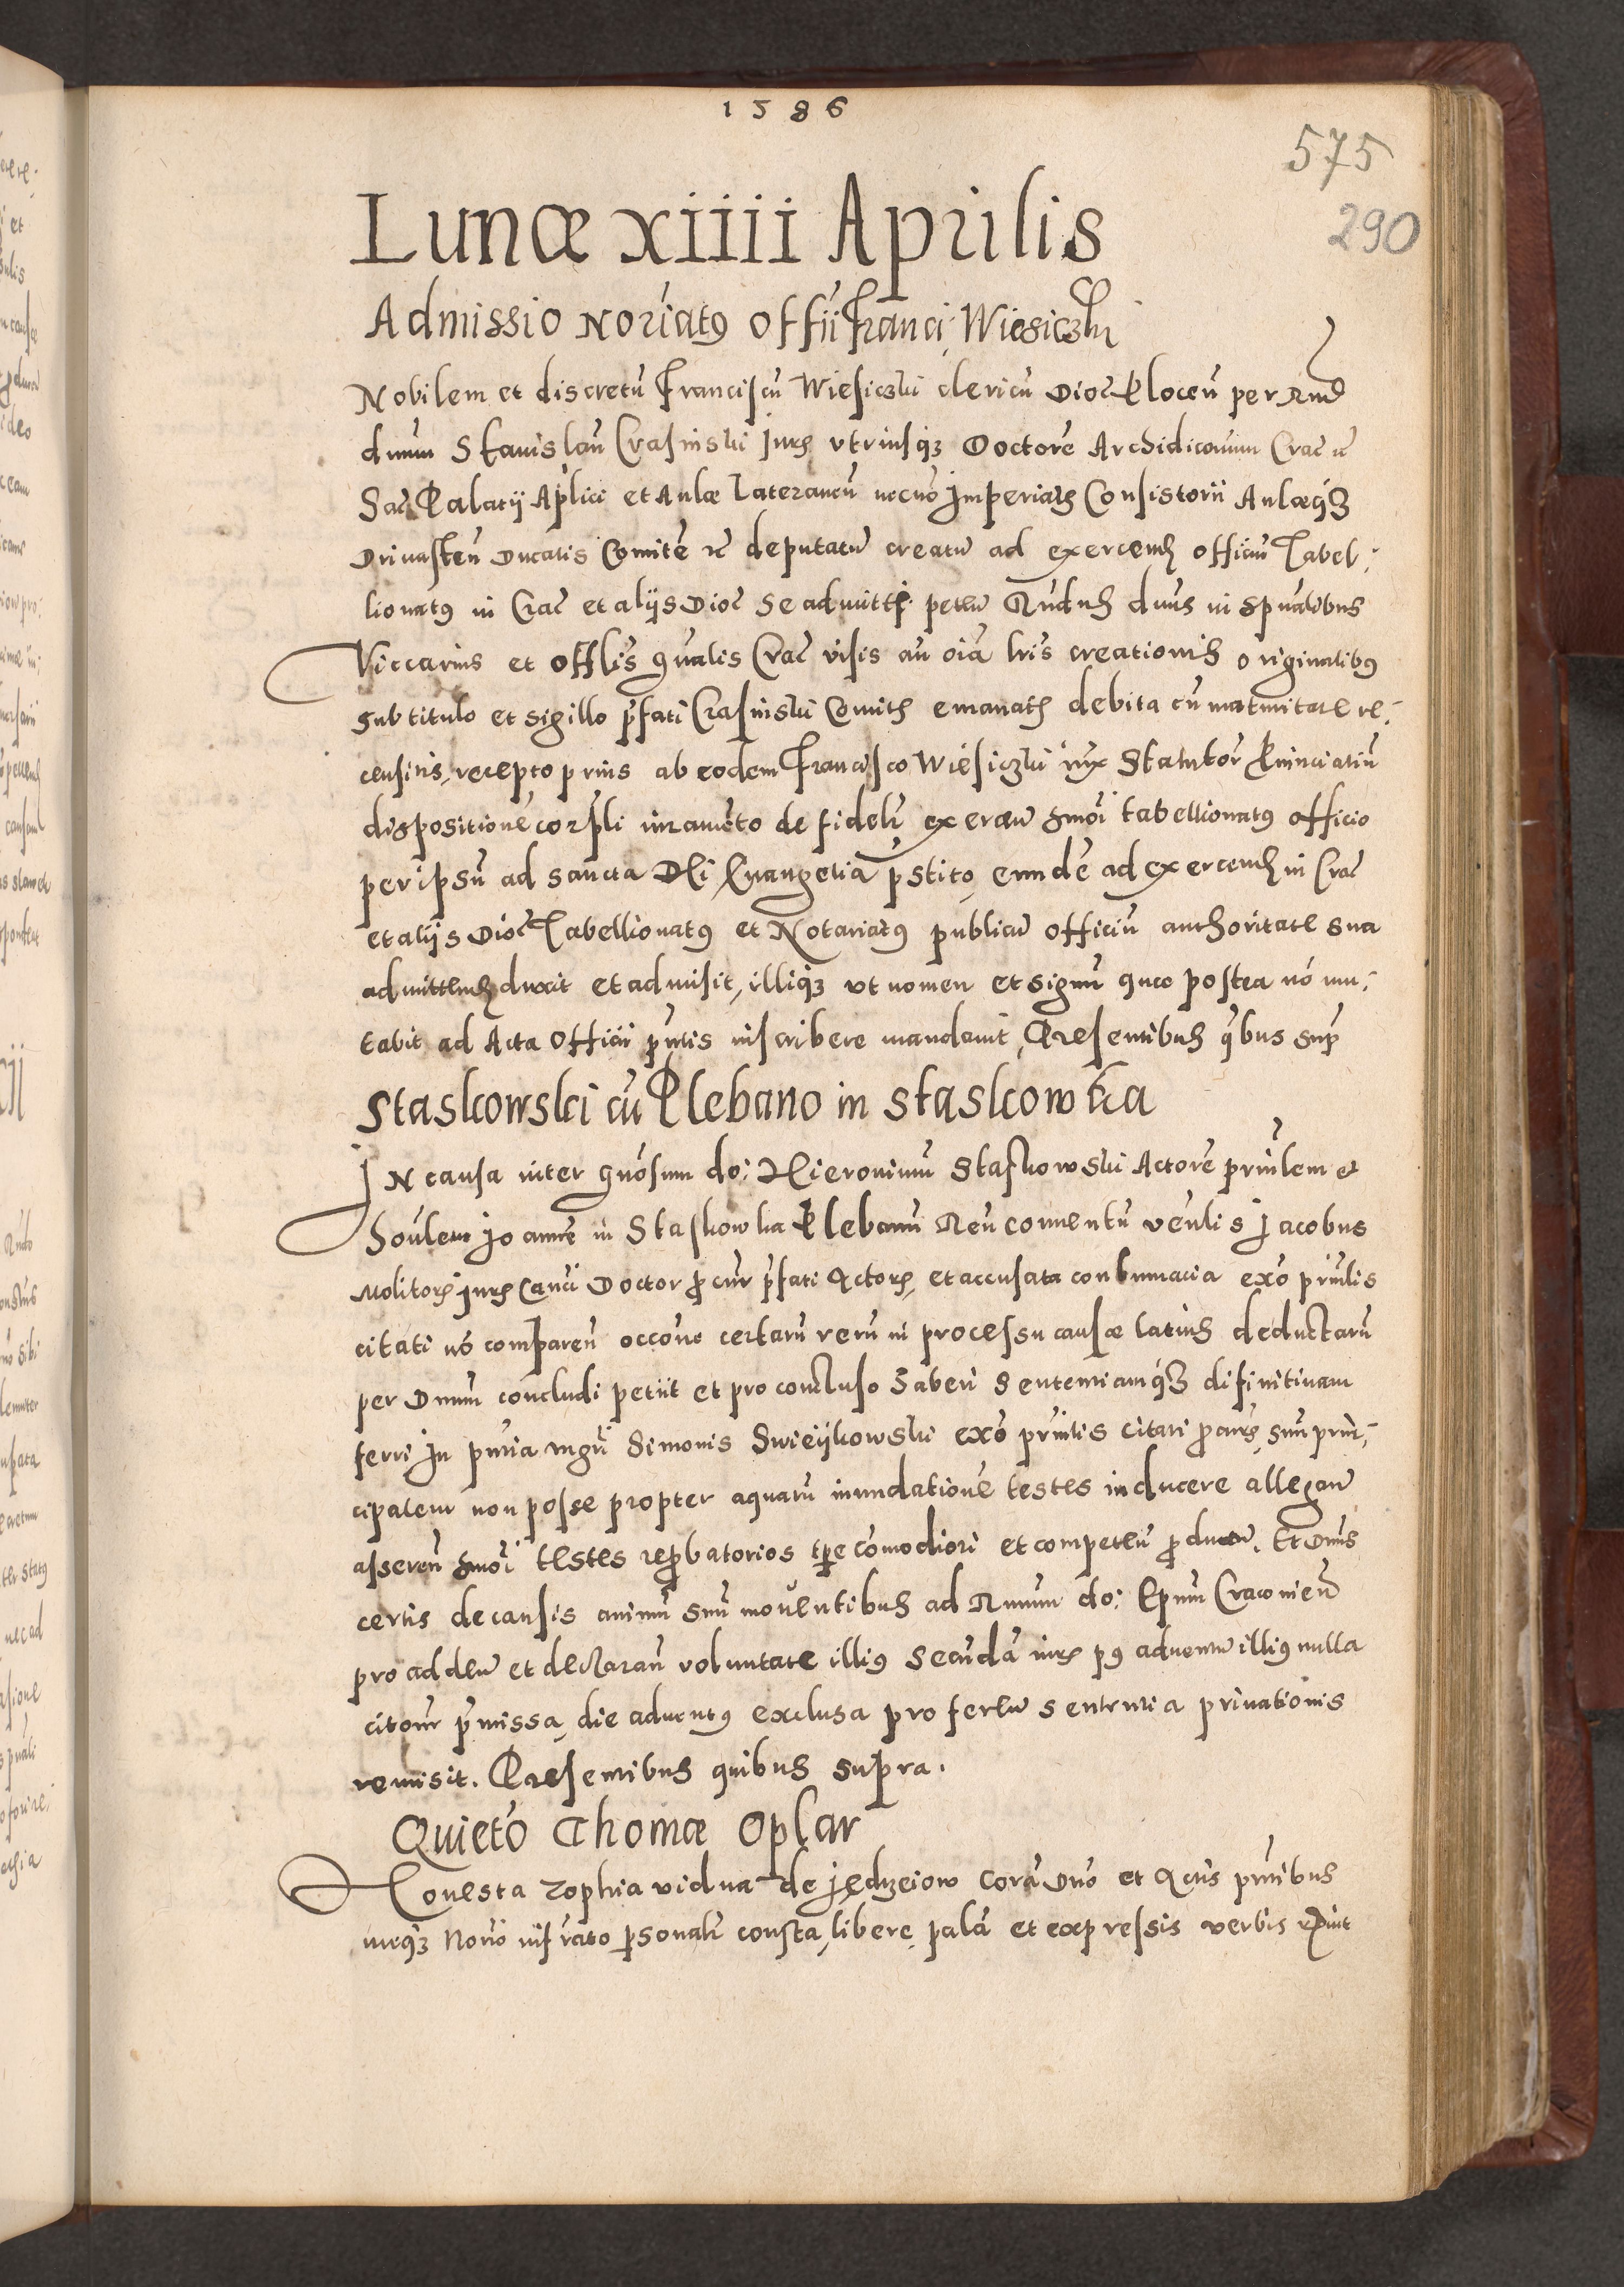 1586
575
290
Lunæ xiiii Aprilis
Admissio Noriatus offii Franci: Wiesiczki
Nobilem et discretū Franciscū Wiesiczki clericū Dioc Plocen̄ per Rnd
dnum Stanislaū Crasinski Juris vtriusq3 Doctorē Archidiconum Crac &c
Sac Palatij Aplici et Aulæ Lateranen̄ necnō Imperialis Consistorii Aulæq3
Drivasten̄ Ducatis Comitē &c deputatū creatū ad exercend officiū Tabel:
lionatus in Crac et alijs Dioc se admitti peteñ Rndus dnus in spūalibus
Viccarius et offlis gn̄alis Crac visis an̄ oīa lris creationis originalibus
sub titulo et sigillo p̄fati Crasinski Comitis emanatis debita cū maturitate re:
censitis, recepto prius ab eodem Francisco Wiesiczki iux Statutor Provincialiū
dispositionē corpli iuramēto de fideli exerceñ hmōi tabellionatus officio
per ipsū ad sancta Dei Euangelia p̄stito, eundē ad exercend in Crac
et alijs Dioc Tabellionatus et Notariatus publicū officiū authoritate sua
admittend duxit et admisit, illiq3 vt nomen et signū quæ postea nō mu:
tabit ad Acta Officii p̄ntis inscribere mandavit, Præsentibus q̄bus sup̄
Staskowski cū Plebano in Staskowka
In causa inter gn̄osum do: Hieronimū Staskowski Actorē prin̄lem et
honlem Joannē in Staskowka Plebanū Reū conventū ven̄lis Jacobus
Molitoris Juris Canci Doctor procur p̄fati Actoris, et accusata contumacia exō prin̄lis
citati nō comparen̄ occōne certarū rerū in processu causæ latius deductarū
per Dnum concludi petiit et pro concluso haberi Sententiamq3 difinitivam
ferri In pn̄tia mgri Simonis Swieijkowski exō prin̄lis citati procuris, suū prin:
cipalem non posse propter aquarū inundationē testes inducere allegañ
asseren̄ hmōi testes reprobatorios tpre cōmodiori et competen̄ producere. Et Dnus
certis de causis animū suū moventibus ad Rmum do: Epum Cracovien̄
pro addeñ et declaran̄ voluntate illius secundā iuris post adventū illius nulla
citōne p̄missa, die adventus exclusa pro fereñ sententia privationis
remisit. Præsentibus quibus supra.
Quietō Thomæ Oplar
Honesta Zophia vidua de Jędrzeiow corā Dno et Actis pn̄tibus
meq3 Norio infrato personali consta, libere, palā et expressis verbis